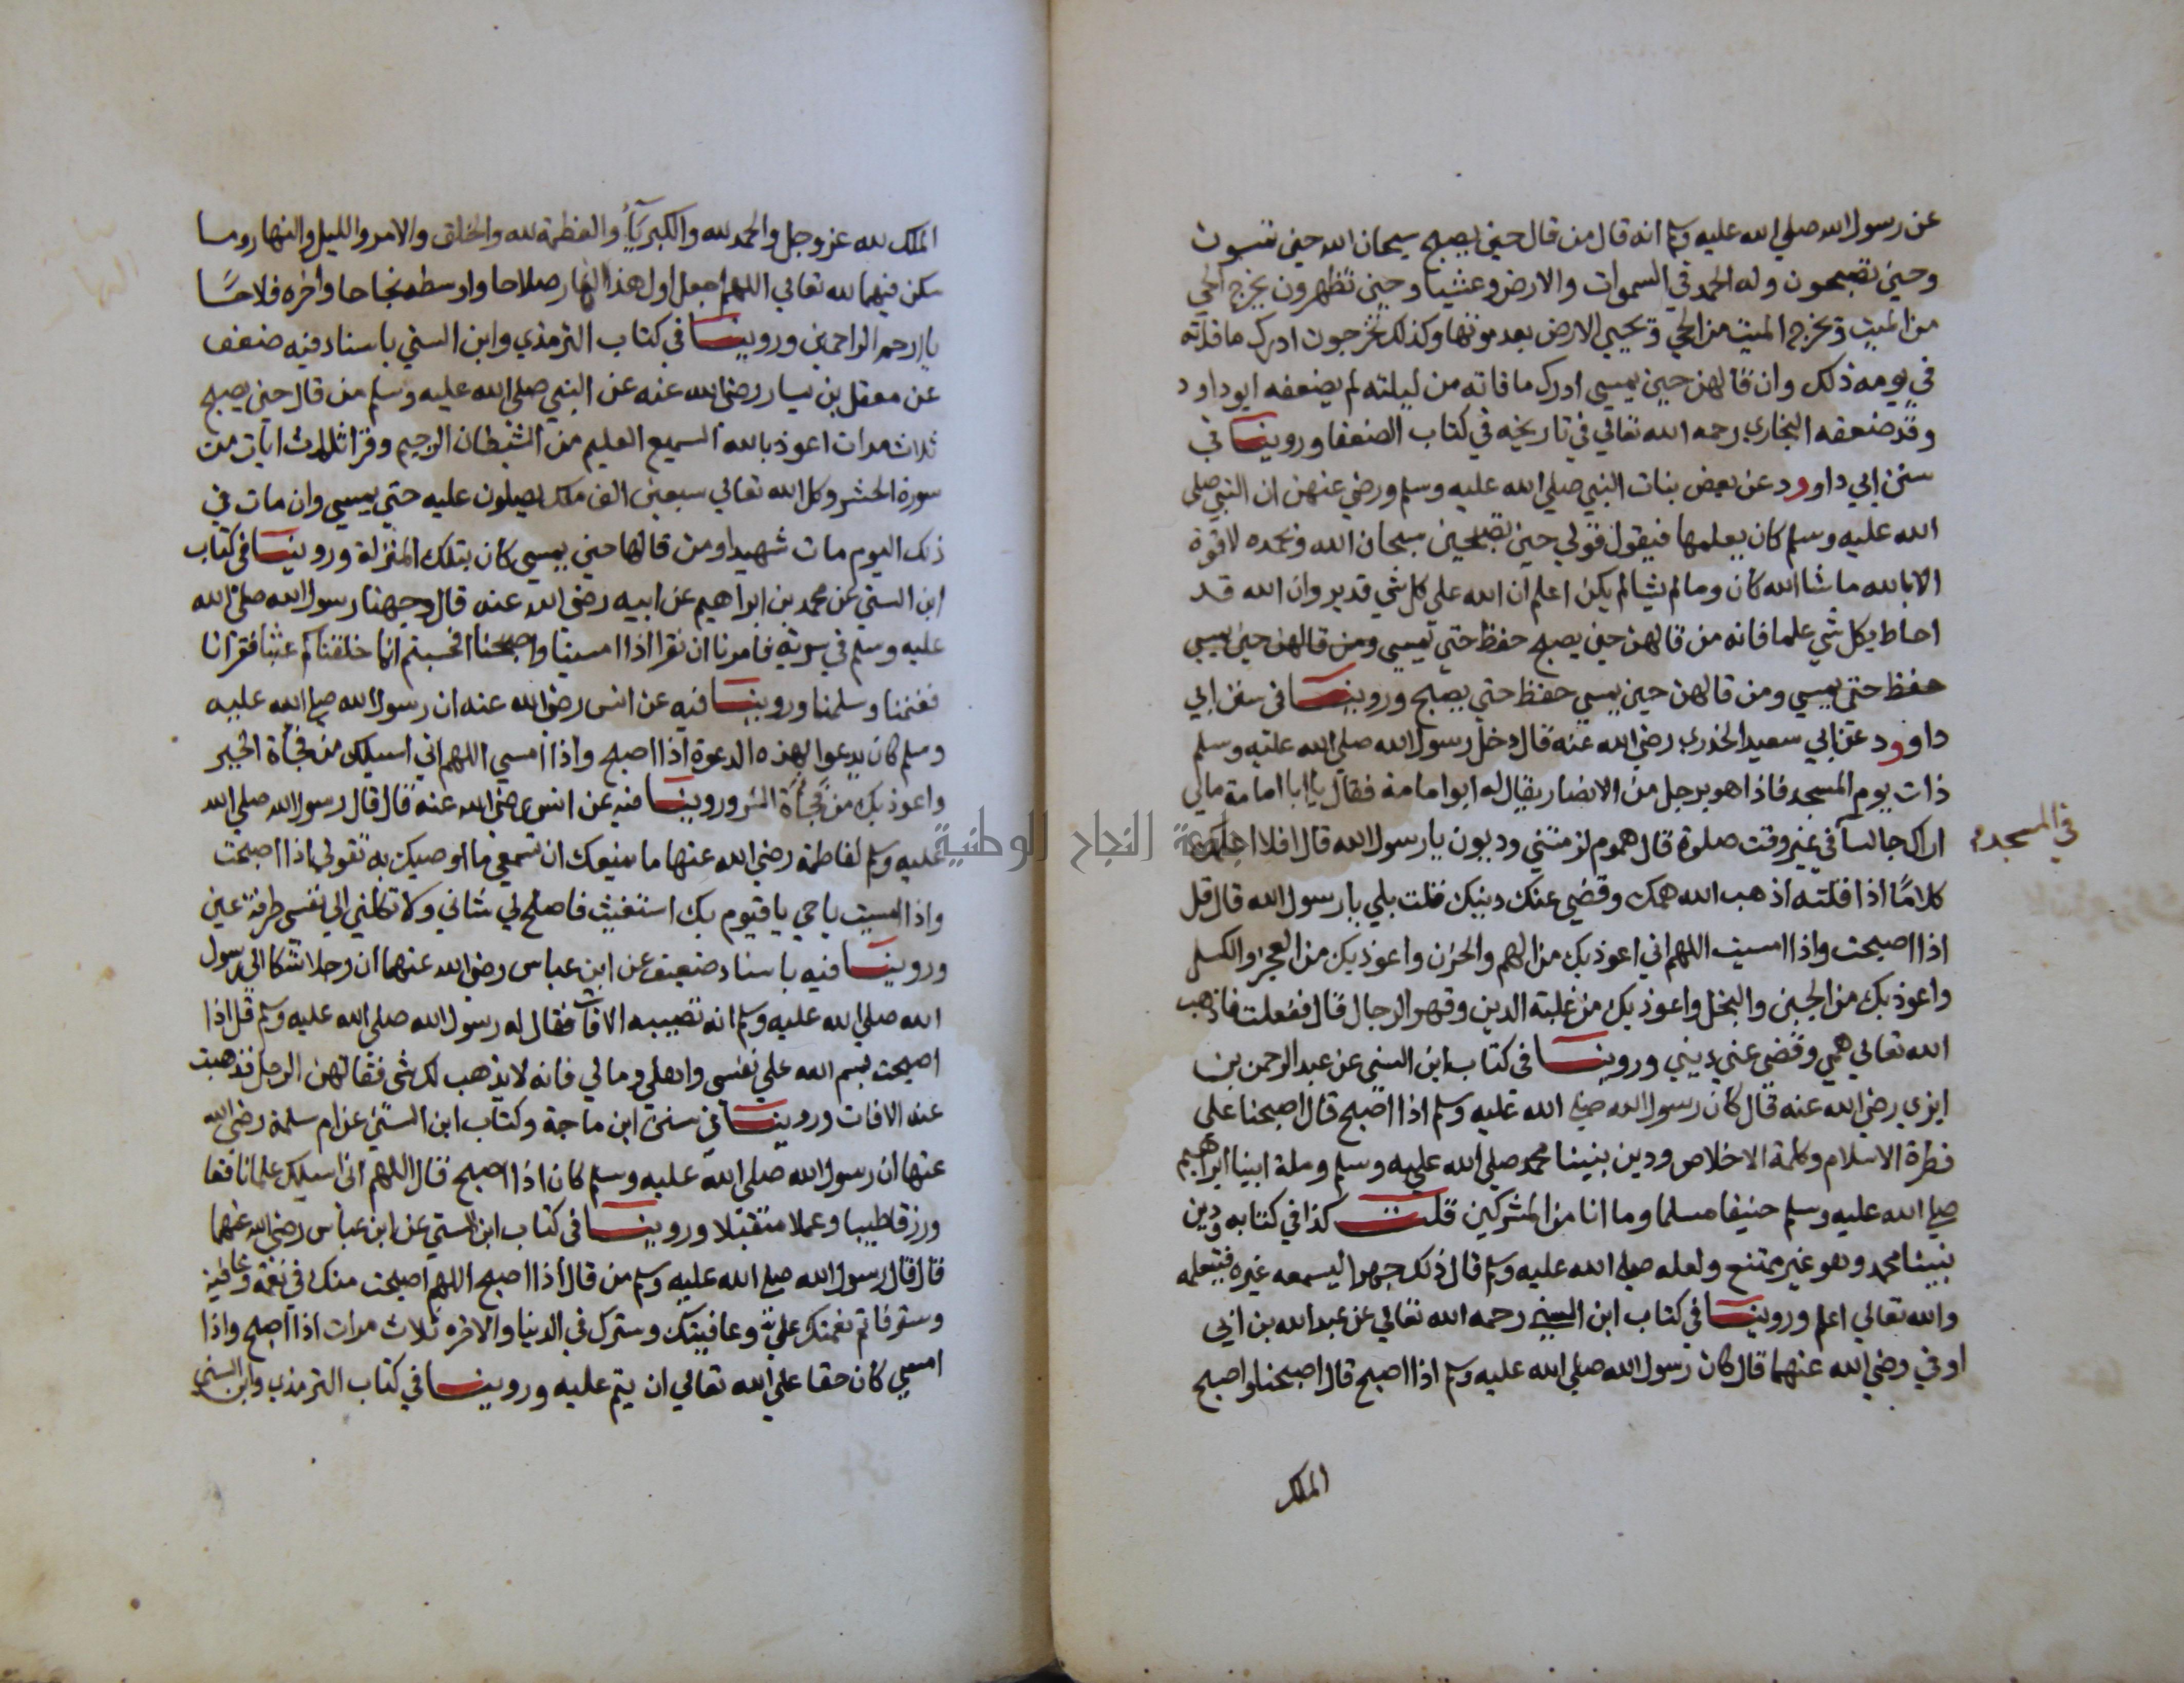 عن رسول الله صلي الله عليه وسلم انه قال من قال حين يصبح سبحان الله حين تمسون
وحين تصبحون وله الحمد في السموات والارض وعشيا وحين تظهرون يخرج الحي
من الميت ويخرج الميت من الحي ويحيي الارض بعد موتها وكذلك تخرجون ادرك ما فاته
في يومه ذلك وان قالهن حين يمسي ادرك ما فاته من ليلته لم يضعفه ابو داود
وقد ضعفه البخاري رحمه الله تعالي في تاريخه في كتاب الضعفا وروينا في
سنن ابي داوود عن بعض بنات النبي صلي الله عليه وسلم ورضي عنهن ان النبي صلي
الله عليه وسلم كان يعلمها فيقول قولي حين تصبحين سبحان الله وبحمده لا قوة
الا بالله ما شا الله كان وما لم يشا لم يكن اعلم ان الله علي كل شي قدير وان الله قد
احاط بكل شي علما فانه من قالهن حين يصبح حفظ حتي يمسي ومن قالهن حين يمسي
حفظ حتي يمسي ومن قالهن حين يمسي حفظ حتي يصبح وروينا في سنن ابي
داوود عن ابي سعيد الخدري رضي الله عنه قال دخل رسول الله صلي الله عليه وسلم
ذات يوم المسجد فاذا هو برجل من الانصار يقال له ابو امامة فقال يا ابا امامة مالي
اراك جالسا في غير وقت صلوة قال هموم لزمتني وديون يا رسول الله قال افلا اعلمك
في المسجد
كلاما اذا قلته اذهب الله همك وقضي عنك دينك قلت بلي يا رسول الله قال قل
اذا اصبحت واذا امسيت اللهم اني اعوذ بك من الهم والحزن واعوذ بك من العجز والكسل
واعوذ بك من الجبن والبخل واعوذ بك من غلبة الدين وقهر الرجال قال ففعلت فاذهب
الله تعالي همي وقضي عني ديني وروينا في كتاب ابن السني عن عبد الرحمن بن
ابزي رضي الله عنه قال كان رسول الله صلي الله عليه وسلم اذا اصبح قال اصبحنا علي
فطرة الاسلام وكلمة الاخلاص ودين نبينا محمد صلي الله عليه وسلم وملة ابينا ابراهيم
صلي الله عليه وسلم حنيفا مسلما وما انا من المشركين قلت كذا في كتابه ودين
نبينا محمد وهو غير ممتنع ولعله صلي الله عليه وسلم قال ذلك جهرا ليسمعه غيره فيتعلمه
والله تعالي اعلم وروينا في كتاب ابن السني رحمه الله تعالي عن عبد الله بن ابي
اوفي رضي الله عنهما قال كان رسول الله صلي الله عليه وسلم اذا اصبح قال اصبحنا واصبح
الملك
الملك لله عز وجل والحمد لله والكبرياء والعظمة لله والخلق والامر والليل والنهار وما
سكن فيهما لله تعالي اللهم اجعل اول هذا النهار صلاحا واوسطه نجاحا واخره فلاحا
يا ارحم الراحمين وروينا في كتاب الترمذي وابن السني باسناد فيه ضعف
عن معقل بن يسار رضي الله عنه عن النبي صلي الله عليه وسلم من قال حين يصبح
ثلاث مرات اعوذ بالله السميع العليم من الشيطان الرجيم وقرا ثلاث ايات من
سورة الحشر وكل الله تعالي سبعين الف ملك يصلون عليه حتي يمسي وان مات في
ذلك اليوم مات شهيدا ومن قالها حين يمسي كان بتلك المنزلة وروينا في كتاب
ابن السني عن محمد بن ابراهيم عن ابيه رضي الله عنه قال وجهنا رسول الله صلي الله
عليه وسلم في سرية فامرنا ان نقرا اذا امسينا واصبحنا افحسبتم انما خلقناكم عبثا فقرانا
فغنمنا وسلمنا وروينا فيه عن انس رضي الله عنه ان رسول الله صلي الله عليه
وسلم كان يدعوا بهذه الدعوة اذا اصبح واذا امسي اللهم اني اسيلك من فجأة الخير
واعوذ بك من فجأة الشر وروينا فيه عن انس رضي الله عنه قال قال رسول الله صلي الله
عليه وسلم لفاطمة رضي الله عنها ما يمنعك ان تسمعي ما اوصيك به تقولي اذا اصبحت
واذا امسيت يا حي يا قيوم بك استغيث فاصلح لي شاني ولا تكلني الي نفسي طرفة عين
وروينا فيه باسناد ضعيف عن ابن عباس رضي الله عنهما ان رجلا شكا الي رسول
الله صلي الله عليه وسلم انه تصيبه الافات فقال له رسول الله صلي الله عليه وسلم قل اذا
اصبحت بسم الله علي نفسي واهلي ومالي فانه لا يذهب لك شي فقالهن الرجل فذهبت
عنه الافات وروينا في سنن ابن ماجة وكتاب ابن السني عن ام سلمة رضي الله
عنها ان رسول الله صلي الله عليه وسلم كان اذا اصبح قال اللهم اني اسيلك علما نافعا
ورزقا طيبا وعملا متقبلا وروينا في كتاب ابن السني عن ابن عباس رضي الله عنهما
قال قال رسول الله صلي الله عليه وسلم من قال اذا اصبح اللهم اصبحت منك في نعمة وعافية
وستر فاتم نعمتك علي وعافيتك وسترك في الدنيا والاخره ثلاث مرات اذا اصبح واذا
امسي كان حقا علي الله تعالي ان يتم عليه وروينا في كتاب الترمذي وابن السني
جامعة النجاح الوطنية